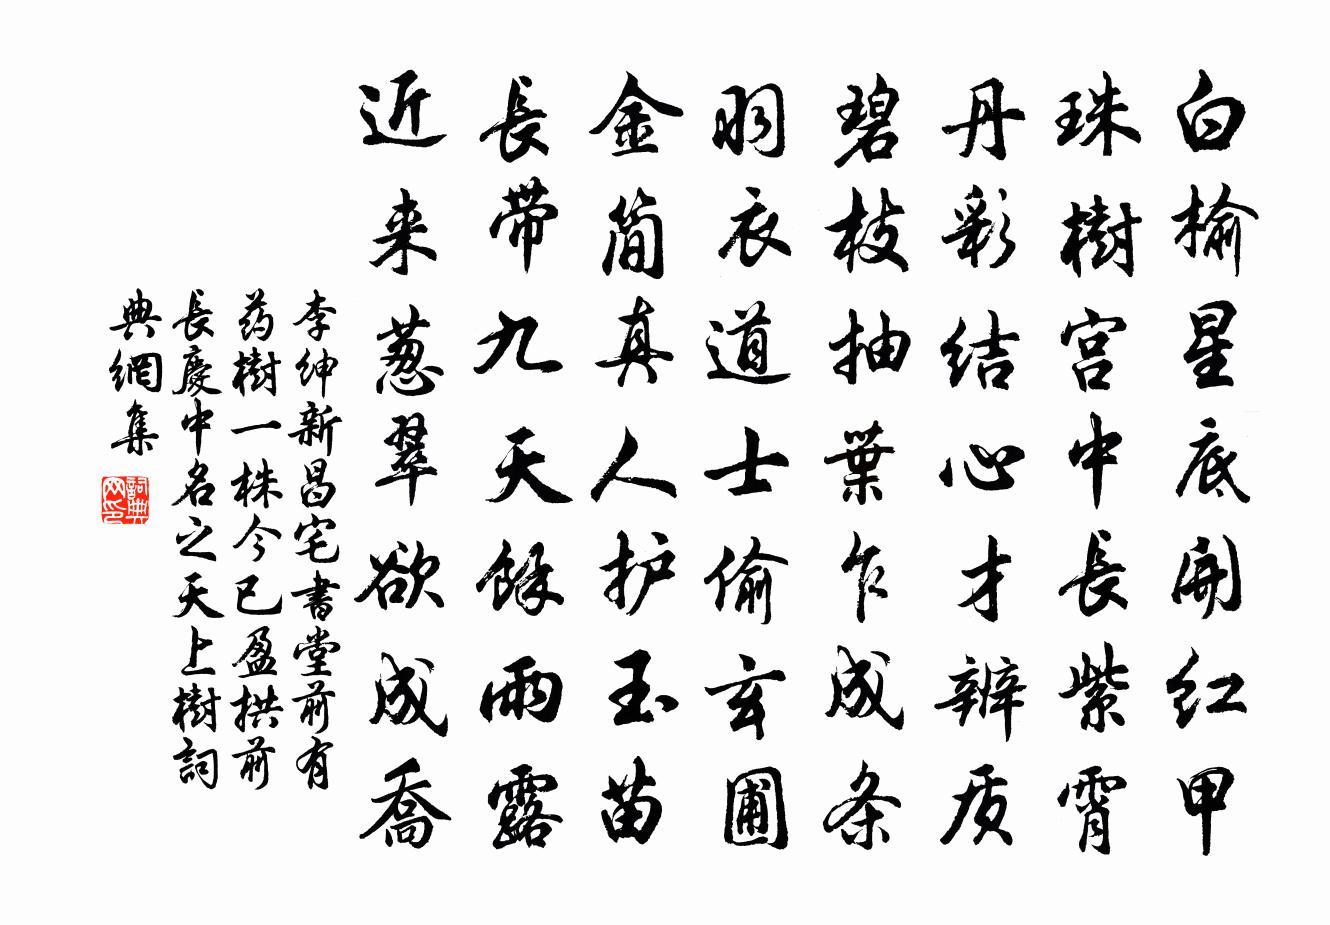 白榆星底開红甲
珠樹宫中長紫霄
丹彩结心才辨质
碧枝抽葉乍成条
羽衣道士偷玄圃
金简真人护玉苗
長带九天餘雨露
近来葱翠欲成喬
李绅新昌宅書堂前有
药樹一株今已盈拱前
長慶中名之天上樹詞
典網集
詞典
网印